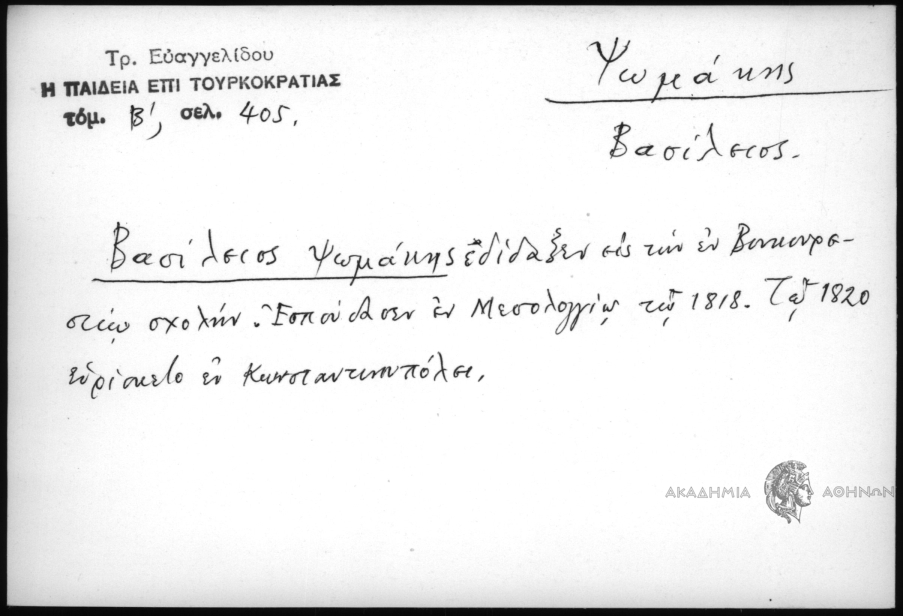 Τρ. Εὐαγγελίδου
Η ΠΑΙΔΕΙΑ ΕΠΙ ΤΟΥΡΚΟΚΡΑΤΙΑΣ
τόμ. Β', σελ. 405.
Ψωμάκης
Βασίλειος.
Βασίλειος Ψωμάκης ἐδίδαξεν εἰς τὴν ἐν Βουκουρε-
στίῳ σχολήν. Ἐσπούδασεν ἐν Μεσολογγίῳ τῷ 1818. Τῷ 1820
εὑρίσκετο ἐν Κωνσταντινουπόλει.
ΑΚΑΔΗΜΙΑ ΑΘΗΝΩΝ